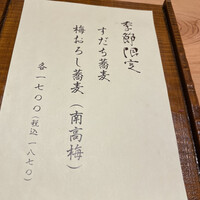 季節限定
すだち蕎麦
梅おろし蕎麦（南高梅）
各一七〇〇（税込 一八七〇）